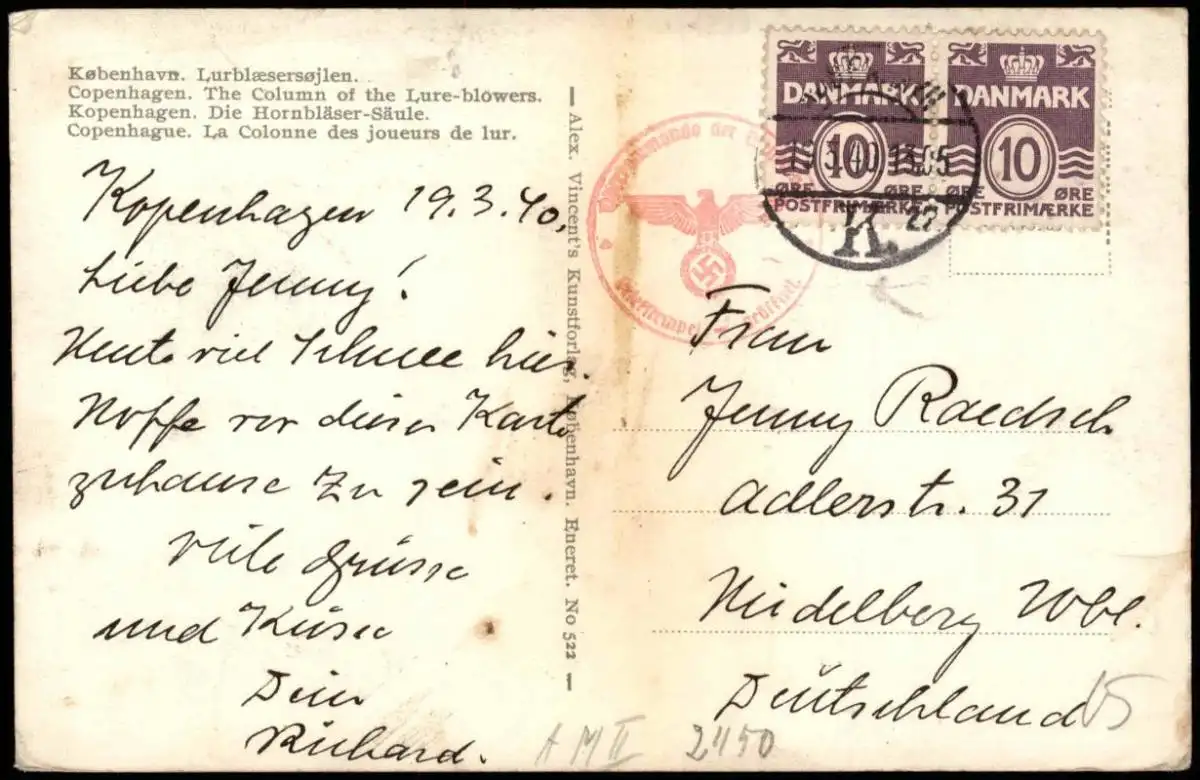 København. Lurblæsersøjlen.
Copenhagen. The Column of the Lure-blowers.
Kopenhagen. Die Hornbläser-Säule.
Copenhague. La Colonne des joueurs de lur.
Kopenhagen 19.3.40,
Liebe Jenny!
Heute viel Schnee hier.
Hoffe vor dieser Karte
zuhause zu sein.
viele Grüsse
und Küsse
Dein
Richard.
— Alex. Vincent's Kunstforlag, København. Eneret. No 522 —
DANMARK
10
ØRE ØRE
POSTFRIMÆRKE
DANMARK
10
ØRE ØRE
POSTFRIMÆRKE
19.3.40 13.05
K. 27
Frau
Jenny Raedsch
Adlerstr. 31
Heidelberg Wbl.
Deutschland
15
A M II 2450